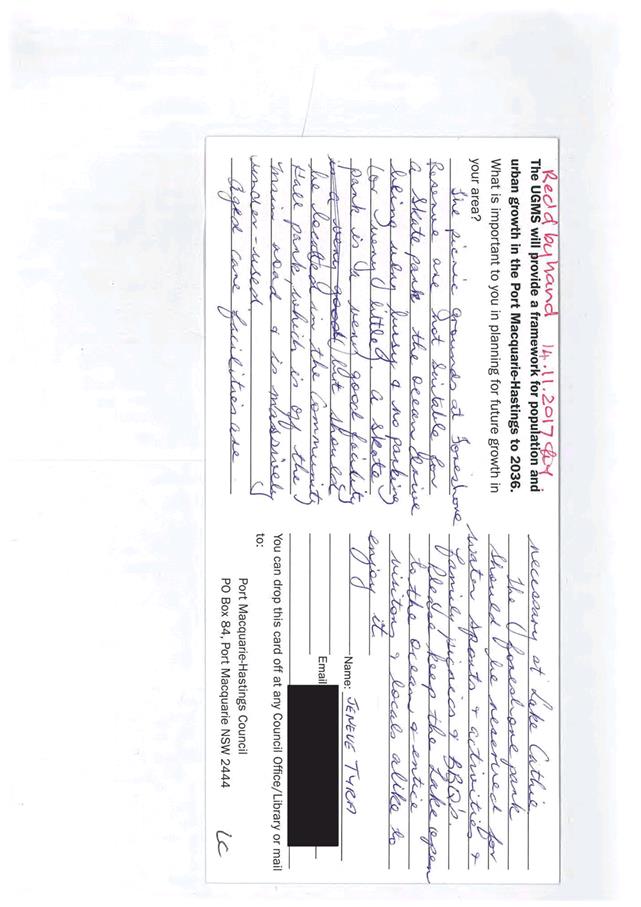 Recd by hand 14.11.2017
The UGMS will provide a framework for population and
urban growth in the Port Macquarie-Hastings to 2036.
What is important to you in planning for future growth in
your area?
The picnic grounds at Foreshore
Reserve are not suitable for
a skate park the ocean drive
being very busy & no parking
(or very little). A skate
park is a very good facility
is a very good but should
be located in the Community
Hall park, which is off the
main road & is massively
under-used.
Aged care facilities are
necessary at Lake Cathie
The foreshore park
should be reserved for
water sports & activities &
family picnics & BBQ's.
Please keep the Lake open
to the ocean & entice
visitors & locals alike to
enjoy it
Name: JENEVE TYRA
Email
You can drop this card off at any Council Office/Library or mail
to:
Port Macquarie-Hastings Council
PO Box 84, Port Macquarie NSW 2444
LC